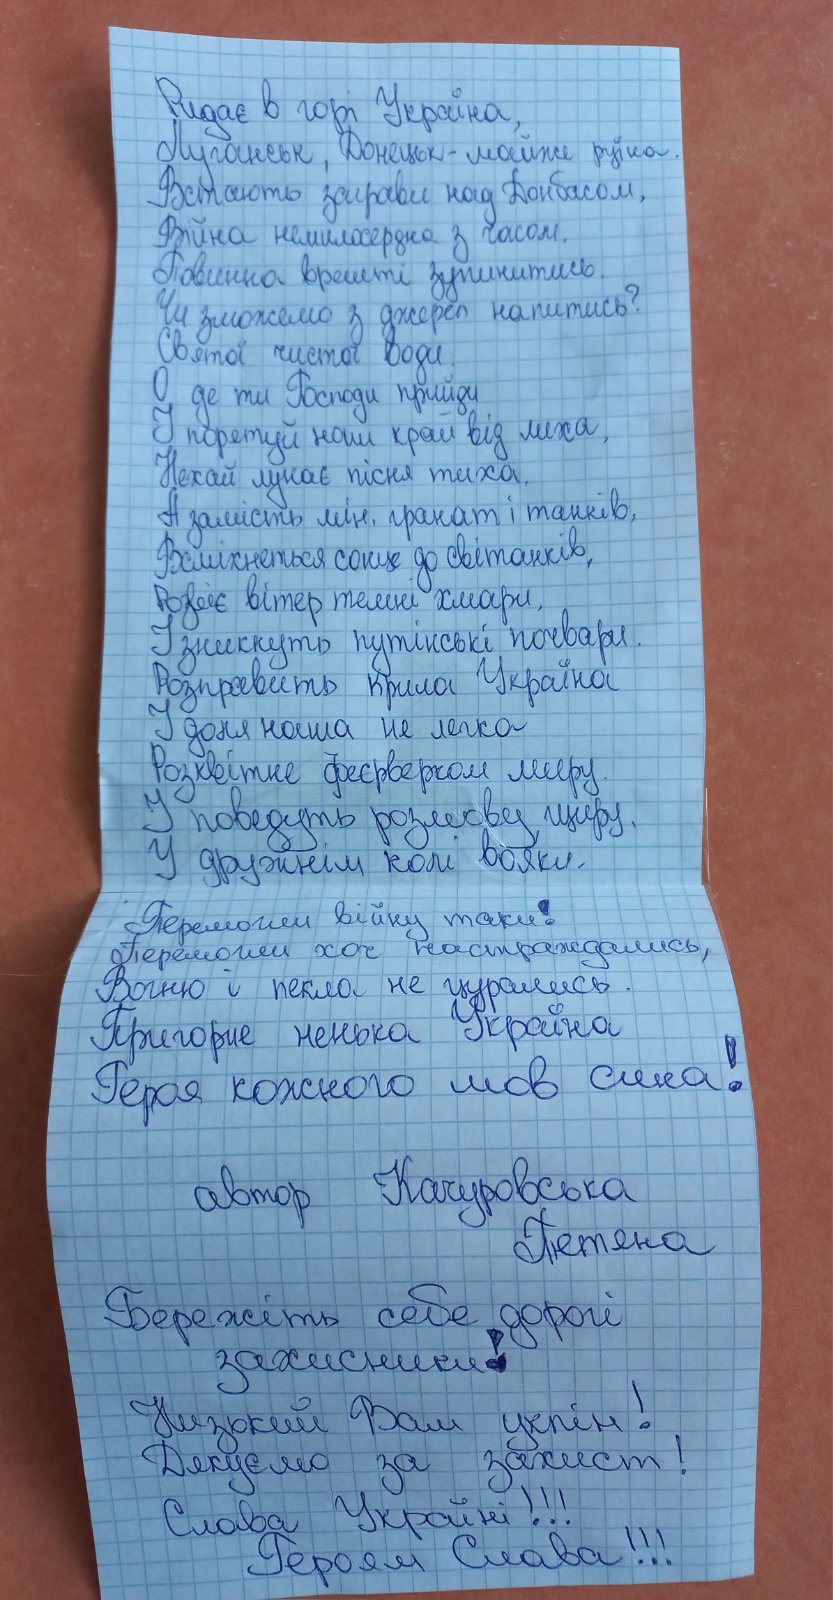 Ридає в горі Україна,
Луганськ, Донецьк - майже руїна.
Встають заграви над Донбасом,
Війна немилосердна з часом.
Повинна врешті зупинитись.
Чи зможемо з джерел напитись?
Святої чистої води.
О, де ти Господи прийди
І порятуй наш край від лиха,
Нехай лунає пісня тиха.
А замість мін, гранат і танків,
Всміхнеться сонце до світанків,
Розвіє вітер темні хмари,
І зникнуть путінські почвари.
Розправить крила Україна
І доня наша не легка
Розквітне феєрверком миру.
І поведуть розмову щиру,
У дружнім колі вояки.
Перемогли війну таки!
Перемогли хоч настраждались,
Вогню і пекла не цурались.
Пригорне ненька Україна
Героя кожного мов сина!
автор Качуровська
Тетяна
Бережіть себе дорогі
захисники!
Низький Вам уклін!
Дякуємо за захист!
Слава Україні!!!
Героям Слава!!!